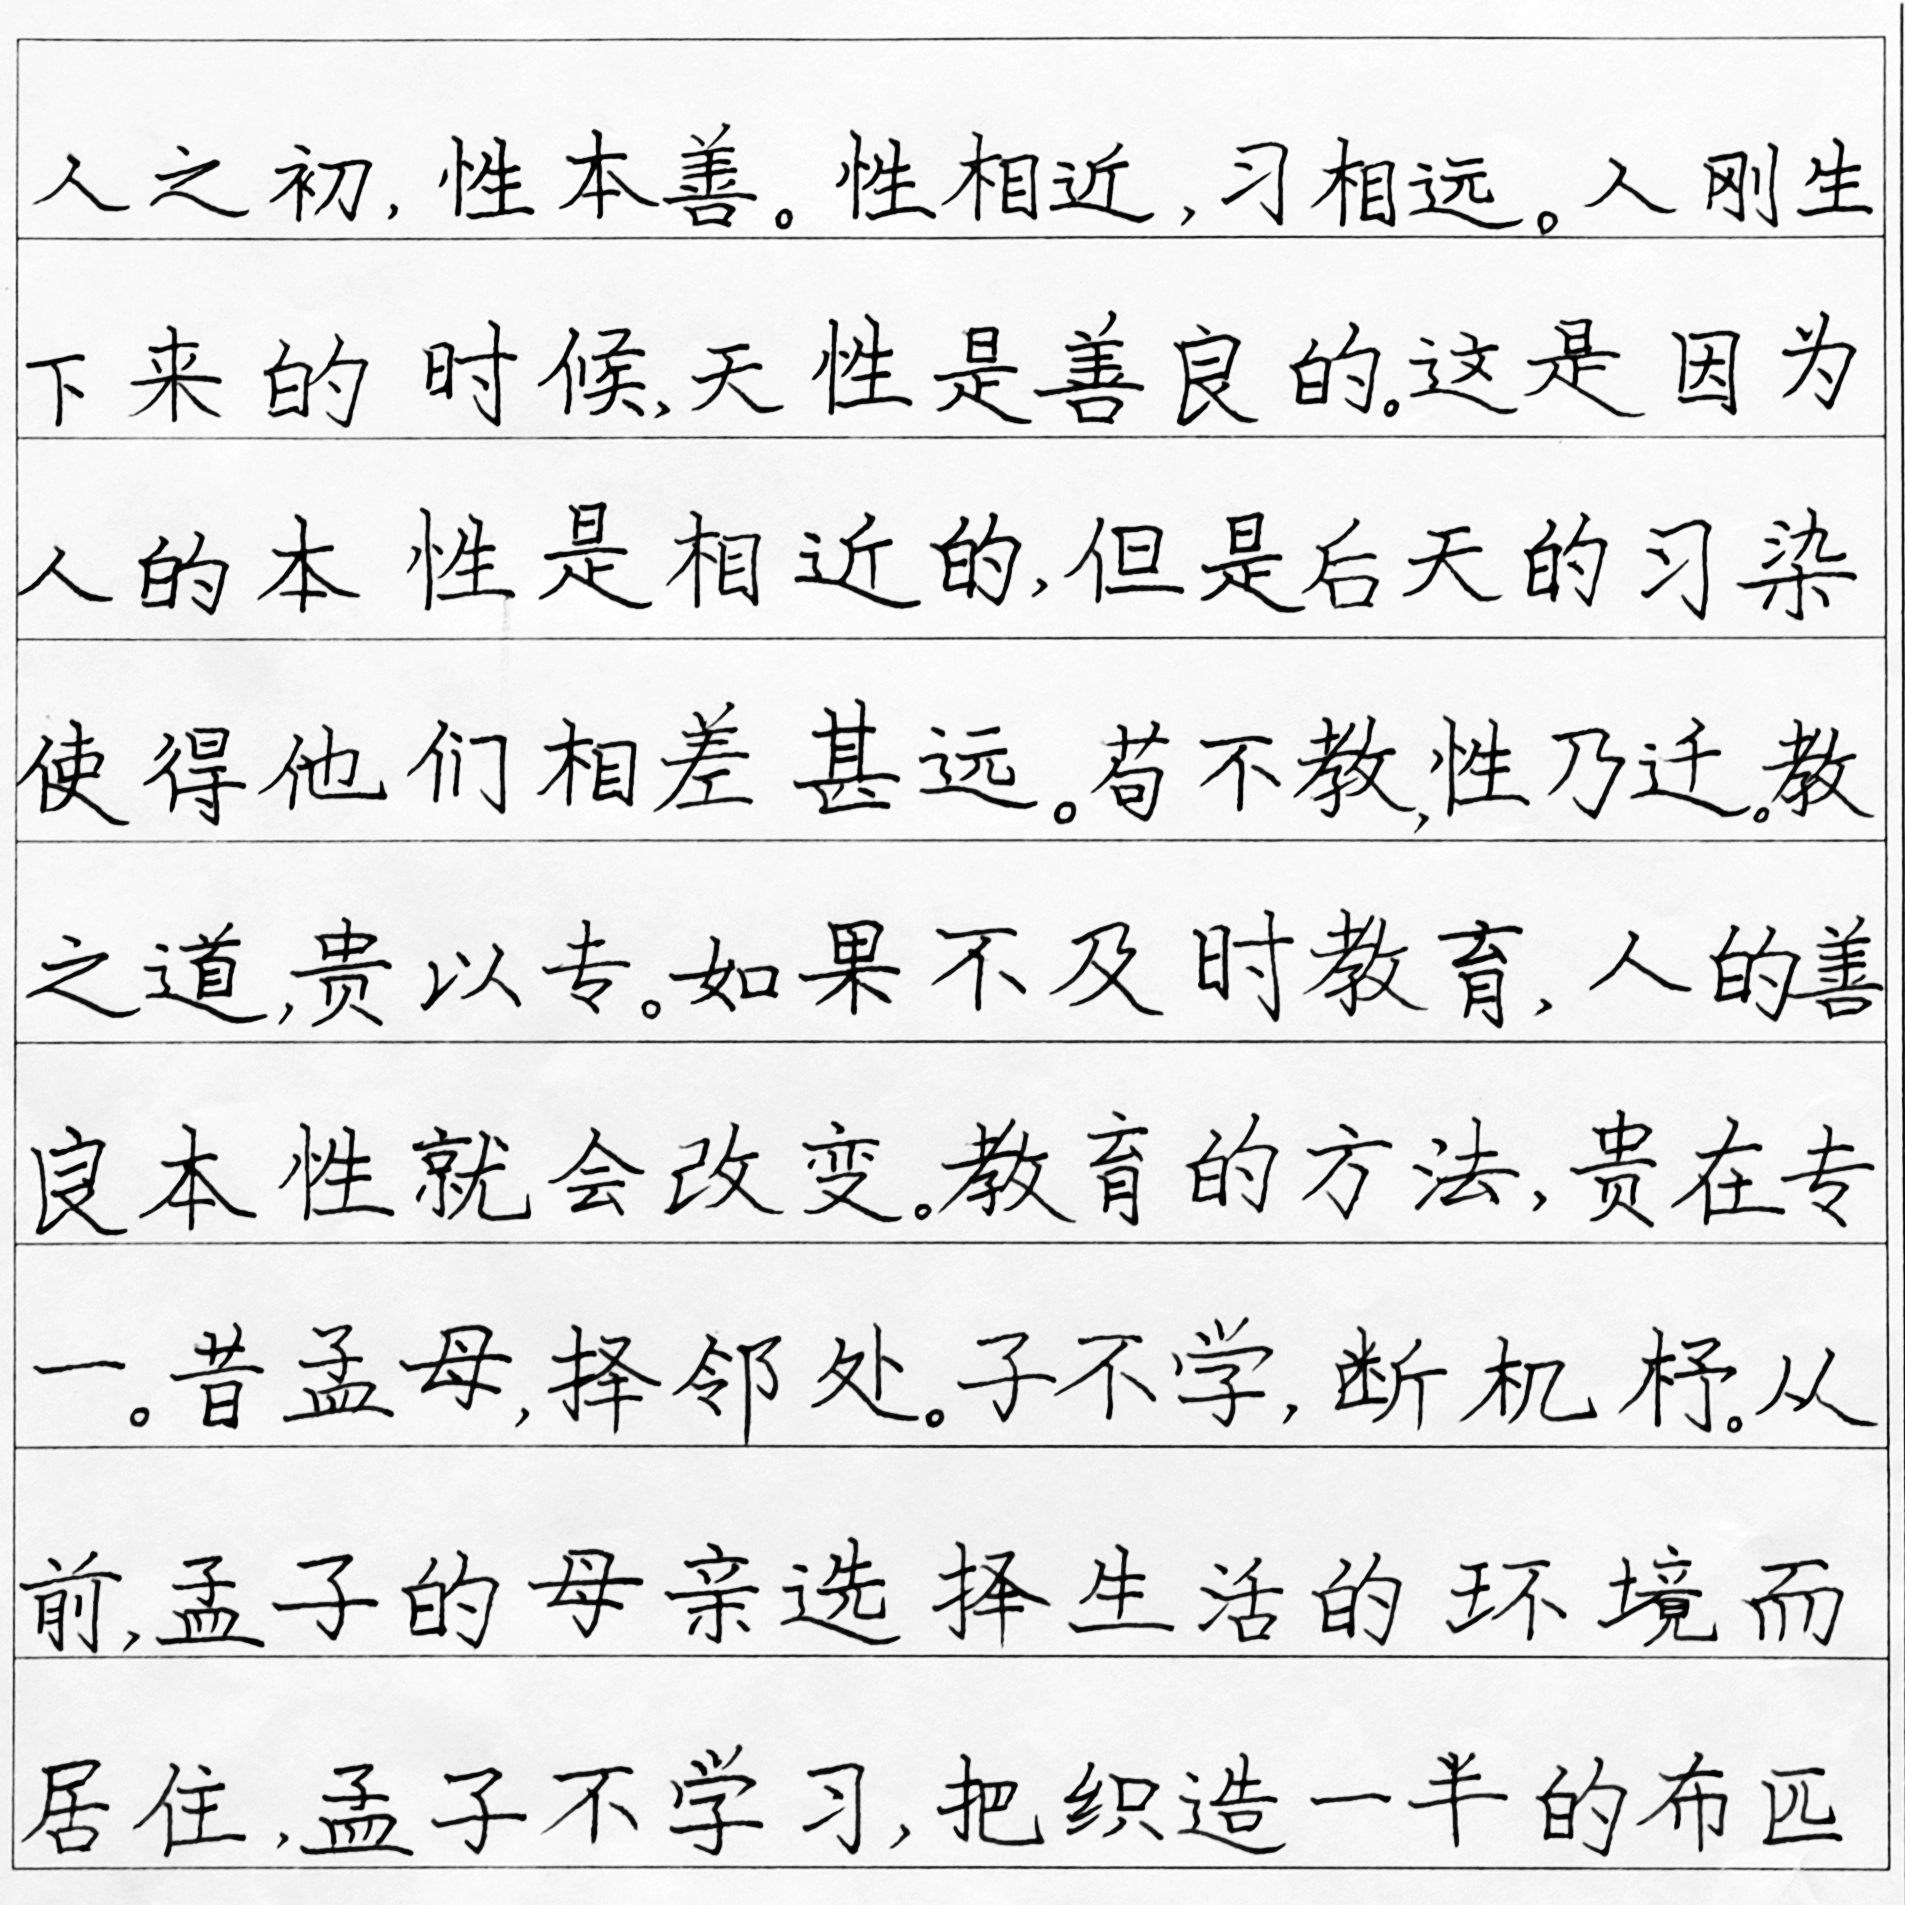 人之初,性本善。性相近,习相远。人刚生
下来的时候,天性是善良的。这是因为
人的本性是相近的,但是后天的习染
使得他们相差甚远。苟不教,性乃迁。教
之道,贵以专。如果不及时教育,人的善
良本性就会改变。教育的方法,贵在专
一。昔孟母,择邻处。子不学,断机杼。从
前,孟子的母亲选择生活的环境而
居住,孟子不学习,把织造一半的布匹